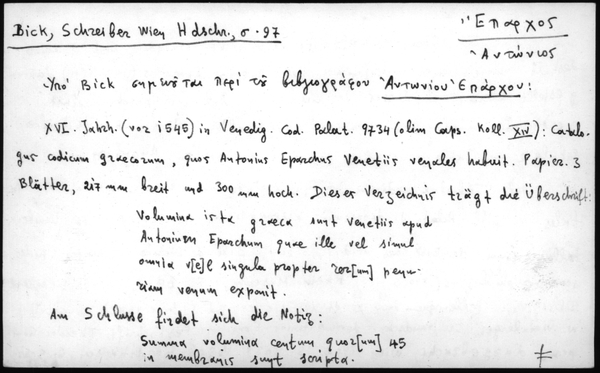 Bick, Schreiber Wien Hdschr., σ. 97
Ἔπαρχος
Ἀντώνιος
Ὑπὸ Bick σημειοῦται περὶ τοῦ βιβλιογράφου Ἀντωνίου Ἐπάρχου:
XVI. Jahrh. (vor 1545) in Venedig. Cod. Palat. 9734 (olim Caps. Koll. XIV): Catalo-
gus codicum graecorum, quos Antonius Eparchus Venetiis venales habuit. Papier. 3
Blätter, 217 mm breit und 300 mm hoch. Dieses Verzeichnis trägt die Überschrift:
Volumina ista graeca sunt Venetiis apud
Antonium Eparchum quae ille vel simul
omnia v[e]l singula propter rer[um] penu-
riam venum exponit.
Am Schlusse findet sich die Notiz:
Summa volumina centum quor[um] 45
in membranis sunt scripta.